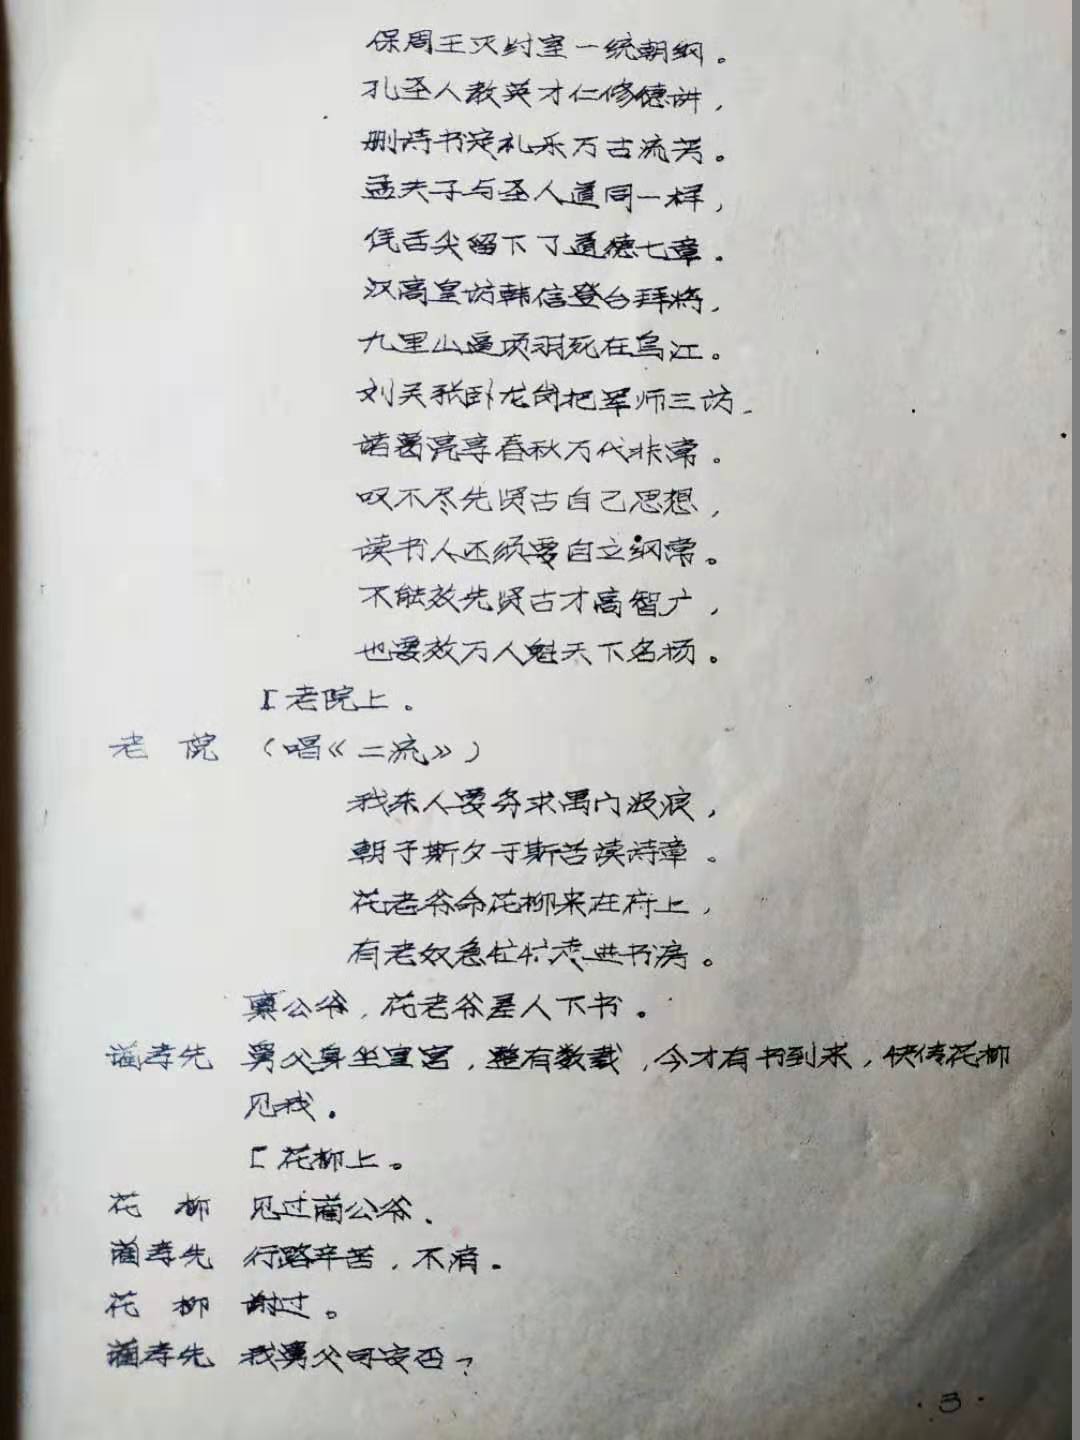 保周王灭纣室一统朝纲。
孔圣人教英才仁修德讲，
删诗书定礼乐万古流芳。
孟夫子与圣人道同一样，
凭舌尖留下了道德七章。
汉高皇访韩信登台拜将，
九里山逼项羽死在乌江。
刘关张卧龙岗把军师三访，
诸葛亮享春秋万代非常。
叹不尽先贤古自己思想，
读书人还须要自立纲常。
不能效先贤古才高智广，
也要效万人魁天下名扬。
［老院上。
老 院 （唱《二流》）
我东人要务求禹门波浪，
朝于斯夕于斯苦读诗章。
花老爷命花柳来在府上，
有老奴急忙忙走进书房。
禀公爷，花老爷差人下书。
蔺孝先 舅父身坐宜宫，整有数载，今才有书到来，快传花柳
见我。
［花柳上。
花 柳 见过蔺公爷、
蔺孝先 行路辛苦，不消。
花 柳 谢过。
蔺孝先 我舅父可安否？
·3·